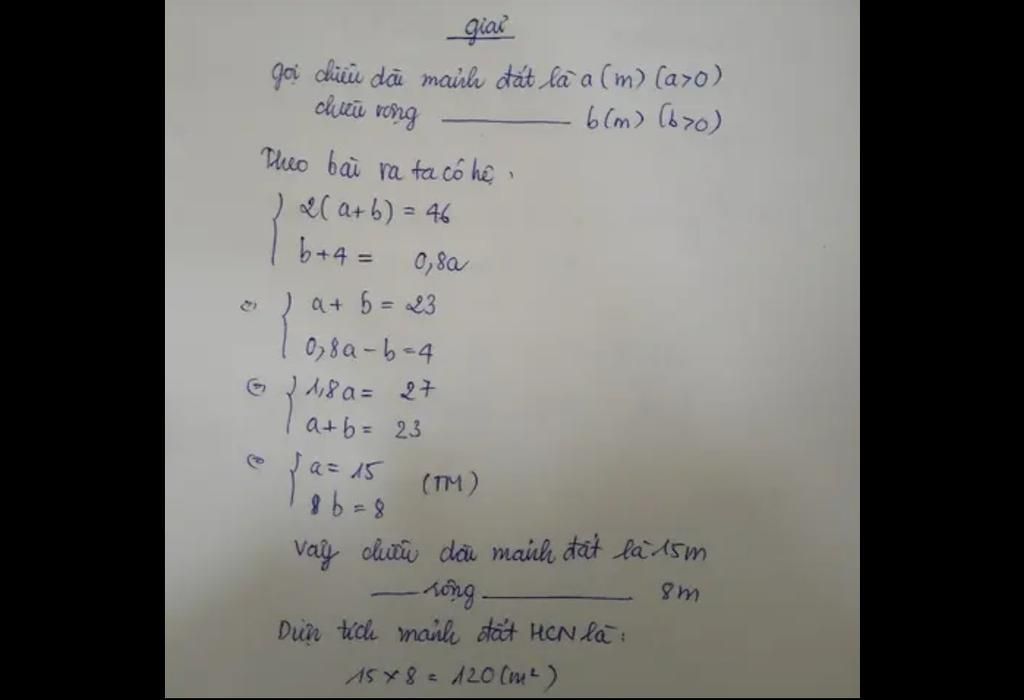 Giải
Gọi chiều dài mảnh đất là a (m) (a>0)
chiều rộng ———— b(m) (b>0)
Theo bài ra ta có hệ:
{ 2(a+b) = 46
b+4 = 0,8a
⇔ { a + b = 23
0,8a - b = 4
⇔ { 1,8a = 27
a+b = 23
⇔ { a = 15
8 b = 8 (TM)
Vậy chiều dài mảnh đất là 15m
—— rộng ———— 8m
Diện tích mảnh đất HCN là:
15 × 8 = 120 (m²)